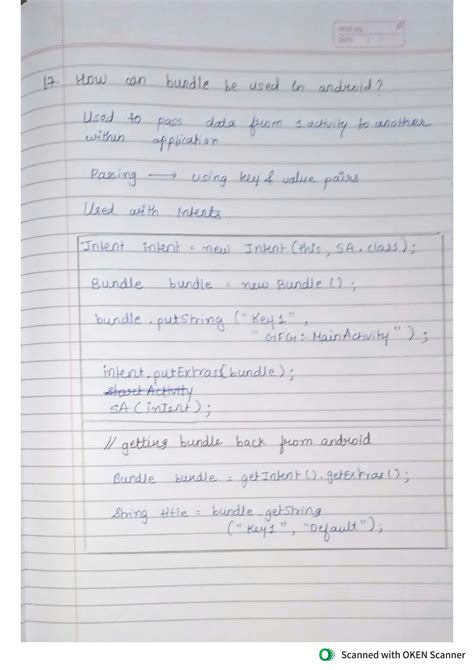 PAGE NO.
DATE: / /
17. How can bundle be used in android?
Used to pass data from 1 activity to another
within application
Passing → using key & value pairs
Used with Intents.
Intent intent = new Intent(this, SA.class);
Bundle bundle = new Bundle();
bundle.putString ("Key1",
"GFG: MainActivity");
intent.putExtras(bundle);
Start Activity
SA (intent);
// getting bundle back from android
Bundle bundle = getIntent().getExtras();
String title = bundle.getString
("Key1", "Default");
Scanned with OKEN Scanner